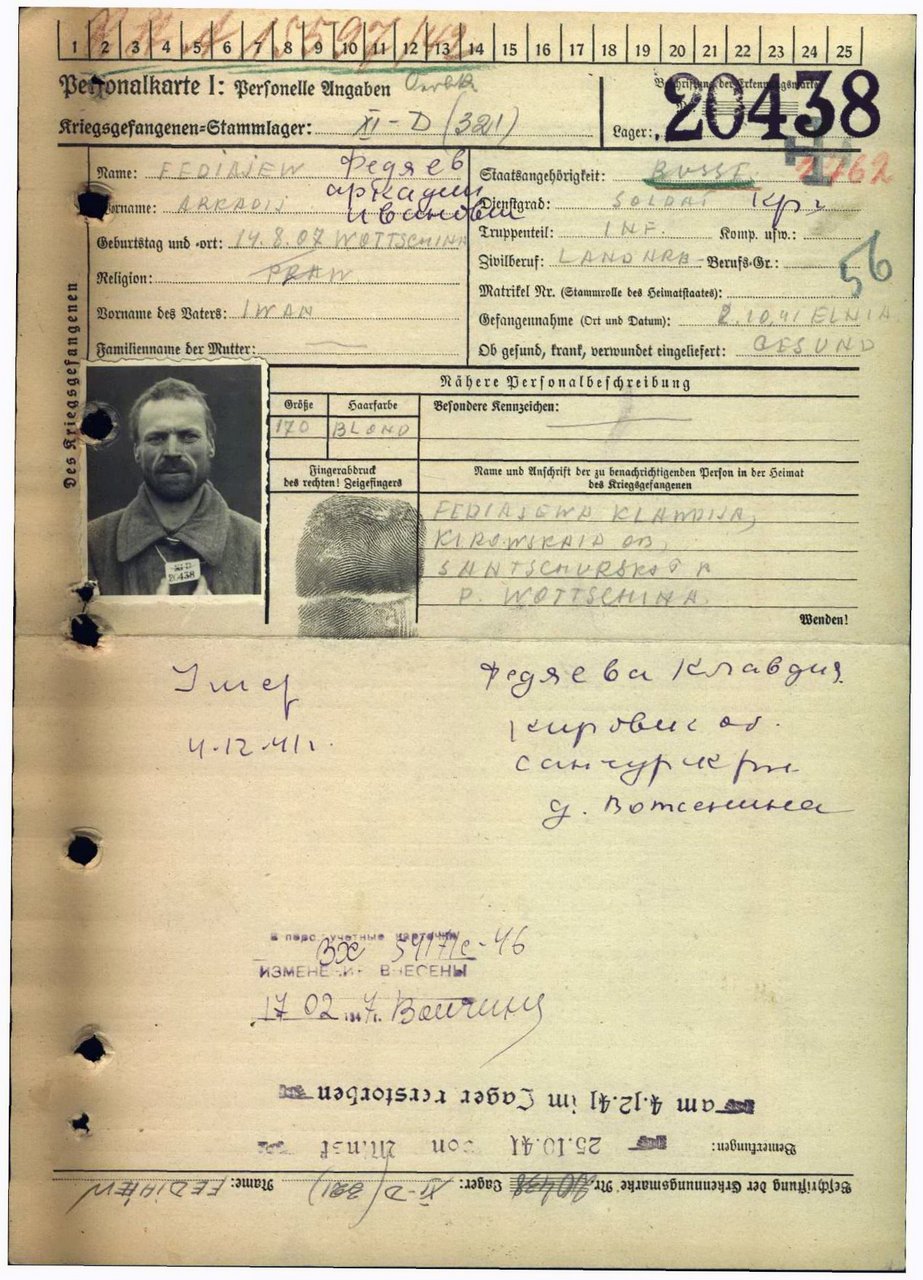 1 2 3 4 5 6 7 8 9 10 11 12 13 14 15 16 17 18 19 20 21 22 23 24 25
15597/42
Personalkarte I: Personelle Angaben
Kriegsgefangenen=Stammlager: XI-D (321)
Beschriftung der Erkennungsmarke
20438
Lager:
Des Kriegsgefangenen
Name: FEDIAJEW Федяев
Vorname: ARKADIJ Аркадий
Иванович
Geburtstag und =ort: 14.8.07 WOTTSCHINA
Religion: PRAW
Vorname des Vaters: IWAN
Familienname der Mutter: —
Staatsangehörigkeit: RUSSE
762
Dienstgrad: SOLDAT Кр.
Truppenteil: INF. Komp. usw.:
Zivilberuf: LANDARB Berufs=Gr.:
56
Matrikel Nr. (Stammrolle des Heimatstaates):
Gefangennahme (Ort und Datum): 2.10.41 ELNIA
Ob gesund, krank, verwundet eingeliefert: GESUND
Nähere Personalbeschreibung
Größe Haarfarbe Besondere Kennzeichen:
170 BLOND —
XI-D
20438
Fingerabdruck
des rechten! Zeigefingers
Name und Anschrift der zu benachrichtigenden Person in der Heimat
des Kriegsgefangenen
FEDIAJEWA KLAWDIJA,
KIROWSKAIA OB,
SANTSCHURSKOT R
D. WOTTSCHINA
Wenden!
Умер
4.12.41г.
Федяева Клавдия
Кировск об.
Санчур рн
д. Вотченина
В перс. учетные карточки
Вх 5417с-46
ИЗМЕНЕНИЯ ВНЕСЕНЫ
17 02 1947г.
am 4.12.41 im Lager verstorben
Bemerkungen: 25.10.41 von Minsk
Beschriftung der Erkennungsmarke Nr. 20438 Lager: XI-D (321) Name: FEDIAJEW